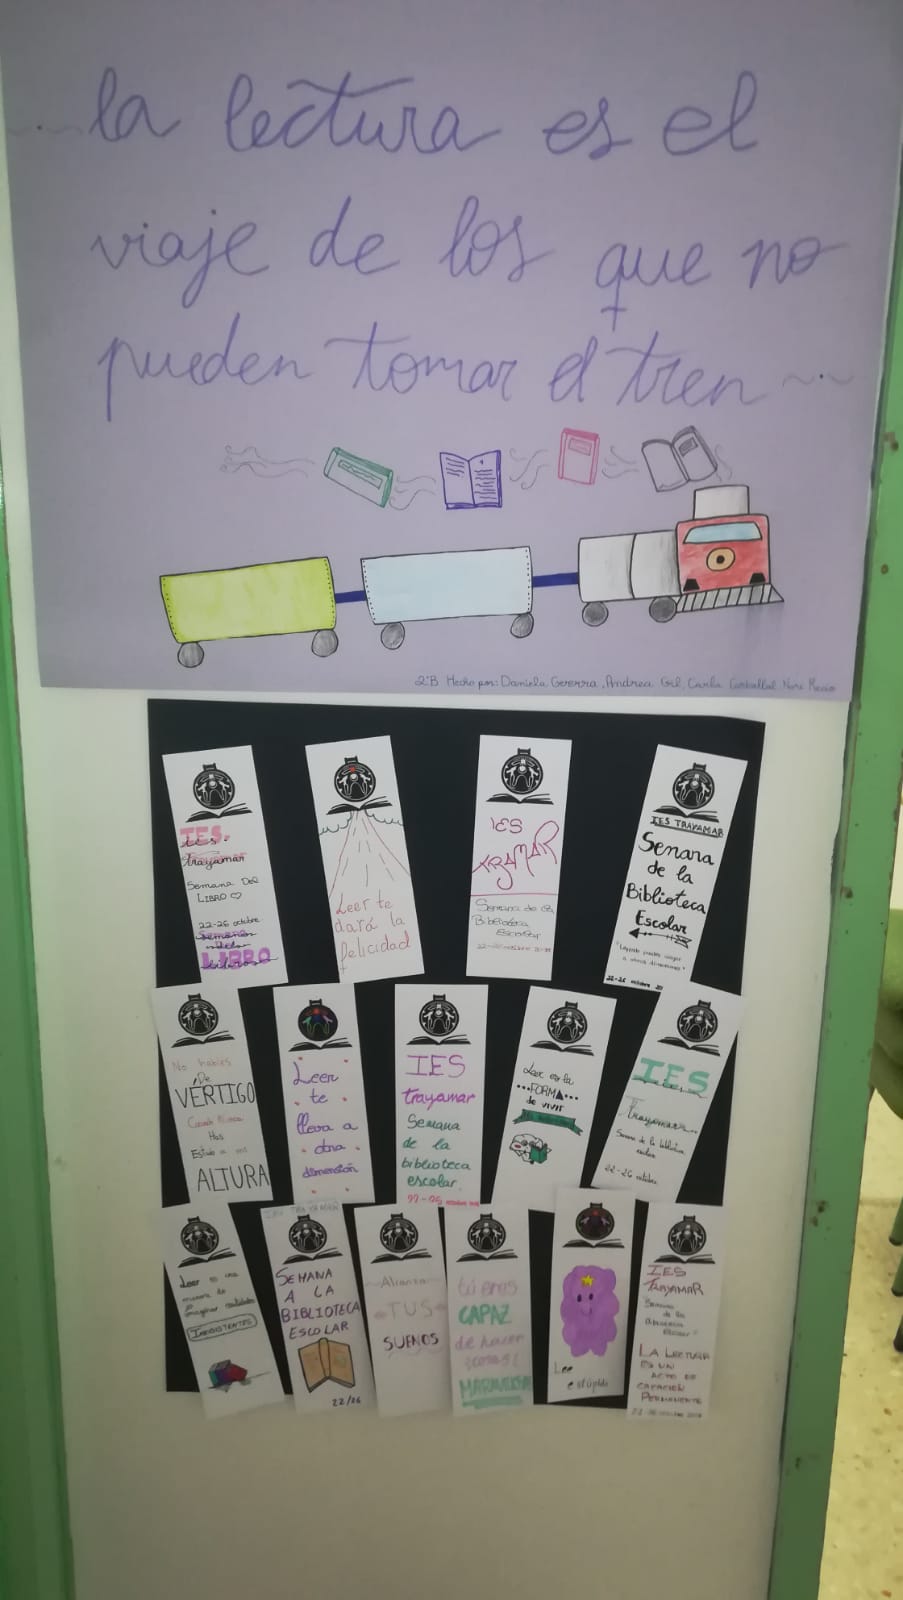 la lectura es el
viaje de los que no
pueden tomar el tren
2ºB Hecho por: Daniela Gererra, Andrea Gil, Carla Nora
IES.
trayamar
Semana Del
LIBRO
22-26 octubre
LIBRO
Leer te
dará la
felicidad
IES
Semana de la
Biblioteca
Escolar
IES TRAYAMAR
Semana
de la
Biblioteca
Escolar
22-26 octubre
No hables
De
VÉRTIGO
Has
ALTURA
Leer
te
lleva a
otra
dimensión
IES
trayamar
Semana
de la
biblioteca
escolar.
22-26 octubre
Leer es la
FORMA
de vivir
IES
Trayamar
Semana de la biblioteca
escolar
22-26 octubre
Leer es una
manera de
imaginar realidades
IES TRAYAMAR
SEMANA
A LA
BIBLIOTECA
ESCOLAR
22/26
Alcanza
TUS
SUEÑOS
tú eres
CAPAZ
de hacer
cosas
Lee
estúpido
IES
TRAYAMAR
Semana
de la
Biblioteca
Escolar
LA LECTURA
ES UN
ACTO DE
CREACIÓN
PERMANENTE
22-26 octubre